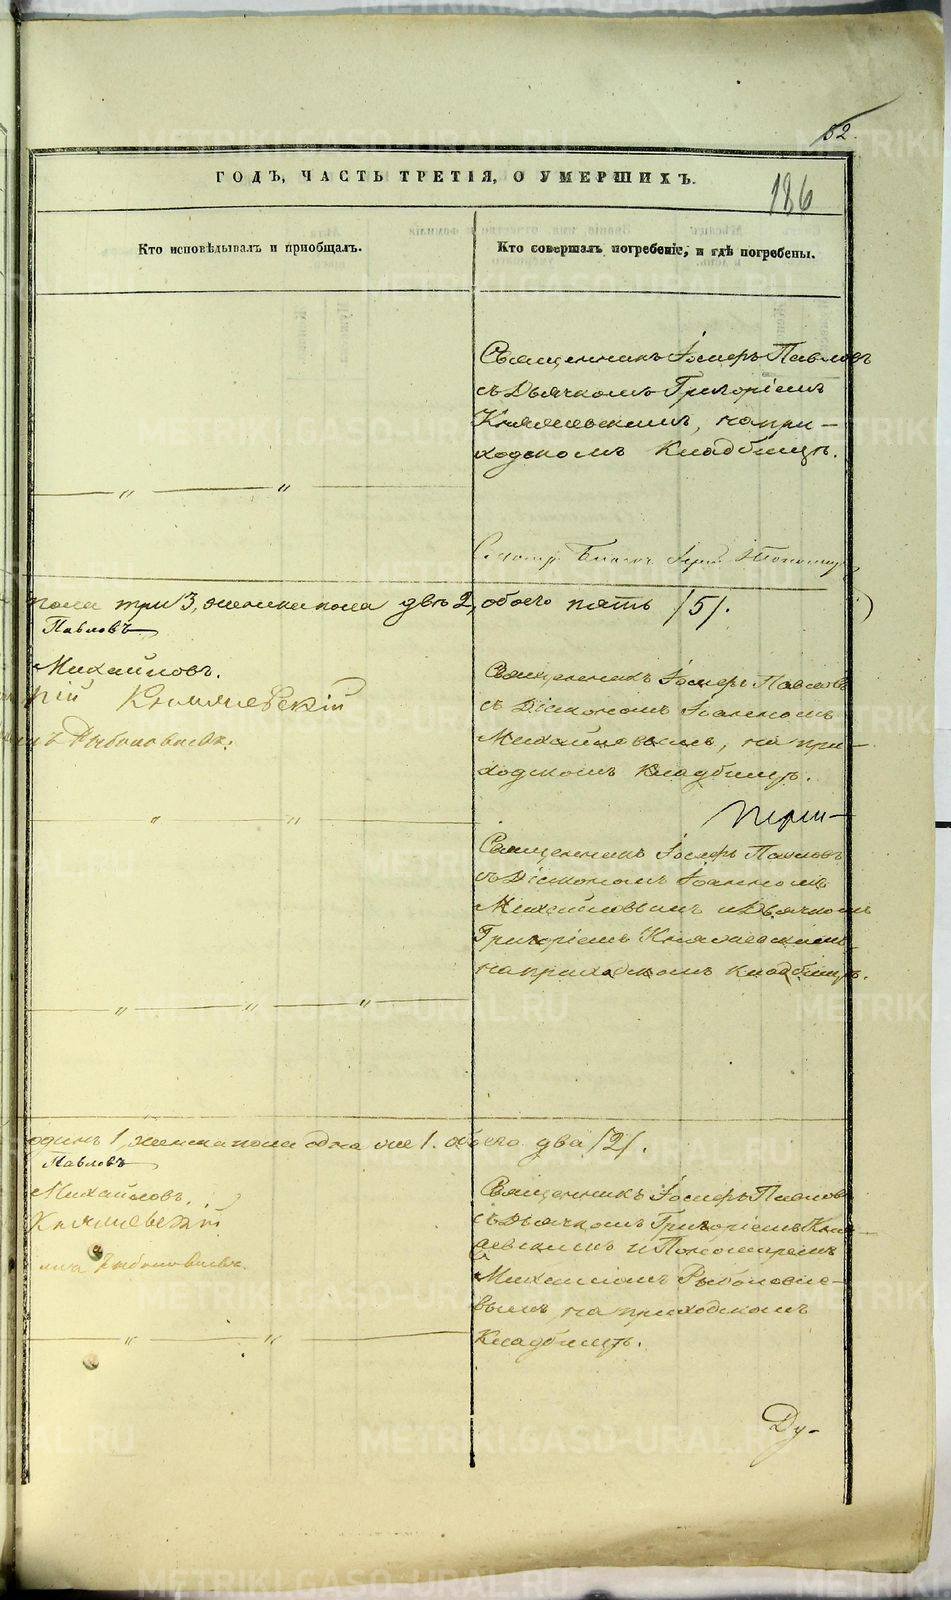 52.
ГОДЪ, ЧАСТЬ ТРЕТІЯ, О УМЕРШИХЪ.
186
Кто исповѣдывалъ и пріобщалъ.
Кто совершалъ погребеніе, и гдѣ погребены.
Священникъ Іосифъ Павловъ
съ Дьячкомъ Григоріемъ
на при-
ходскомъ Кладбищѣ.
пола три 3, женска пола двѣ 2, обоего пять /5/.
Павловъ
Михайловъ.
рій
Священникъ Іосифъ Павловъ
съ Діакономъ Іоанномъ
Михайловымъ, на при-
ходскомъ Кладбищѣ.
Священникъ Іосифъ Павловъ
съ Діакономъ Іоанномъ
Михайловымъ и Дьячкомъ
Григоріемъ
на приходскомъ кладбищѣ.
одинъ 1, женска пола одна же 1. обоего два /2/.
Павловъ
Михайловъ.
Священникъ Іосифъ Павловъ
съ Дьячкомъ Григоріемъ
и Пономаремъ
Михаиломъ
вымъ, на приходскомъ
Кладбищѣ.
Ду-
METRIKI.GASO-URAL.RU